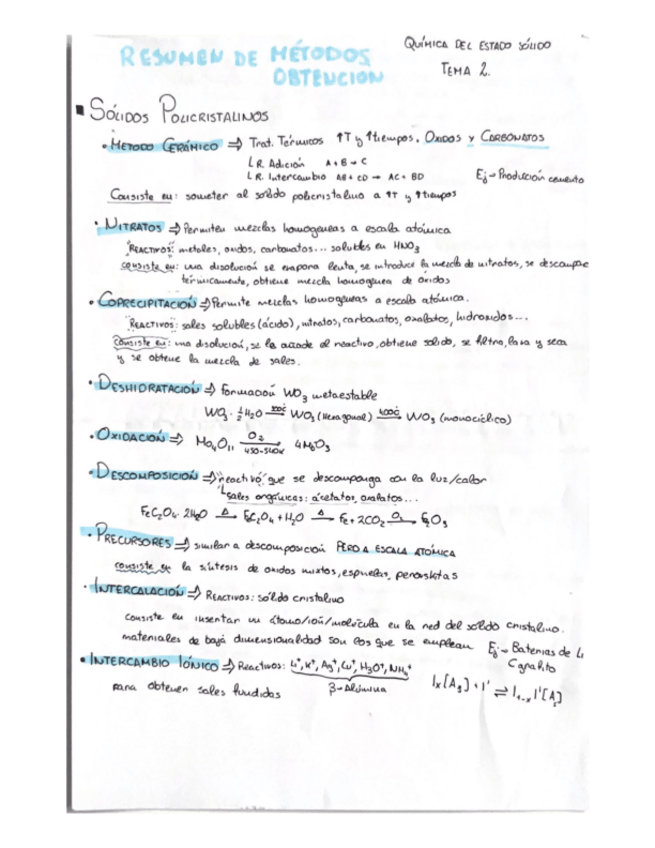 QUÍMICA DEL ESTADO SÓLIDO
RESUMEN DE MÉTODOS
OBTENCION
TEMA 2.
▪ SÓLIDOS POLICRISTALINOS
• METODO CERÁMICO ⇒ Trat. Térmicos ↑T y ↑tiempos. OXIDOS y CARBONATOS
↳ R. Adición A + B → C
↳ R. Intercambio AB + CD → AC + BD Ej → Producción cemento
Consiste en: someter al solido policristalino a ↑T y ↑tiempos
• NITRATOS ⇒ Permiten mezclas homogeneas a escala atómica
"REACTIVOS": metales, oxidos, carbonatos... solubles en HNO3
consiste en: una disolución se evapora lenta, se introduce la mezcla de nitratos, se descompone
térmicamente, obtiene mezcla homogenea de óxidos
• COPRECIPITACIÓN ⇒ Permite mezclas homogéneas a escala atómica.
"REACTIVOS: sales solubles (ácido), nitratos, carbonatos, oxalatos, hidroxidos...
Consiste en: una disolución, se le añade el reactivo, obtiene solido, se filtra, lava y seca
y se obtiene la mezcla de sales.
• DESHIDRATACIÓN ⇒ formación WO3 metaestable
WO3 · 1/2 H2O → WO3 (Hexagonal) 400ºC → WO3 (monoclíclico)
• OXIDACIÓN ⇒ Mo4O11 O2 → 4MoO3
• DESCOMPOSICIÓN ⇒ "reactivo" que se descomponga con la luz/calor
↳ sales orgánicas: acetatos, oxalatos...
FeC2O4 · 2H2O Δ→ FeC2O4 + H2O Δ→ Fe + 2CO2 O2→ Fe2O3
• PRECURSORES ⇒ similar a descomposición PERO A ESCALA ATÓMICA
consiste en la síntesis de oxidos mixtos, espinelas, perovskitas
• INTERCALACIÓN ⇒ REACTIVOS: sólido cristalino
consiste en insertar un átomo/ión/molécula en la red del sólido cristalino.
materiales de baja dimensionalidad son los que se emplean Ej → Baterias de Li
Grafito
• INTERCAMBIO IÓNICO ⇒ Reactivos: Li+, K+, Ag+, Cu+, H3O+, NH4+
para obtener sales fundidas β-Alúmina Ix[As] + I' ⇌ I1-x I'[As]